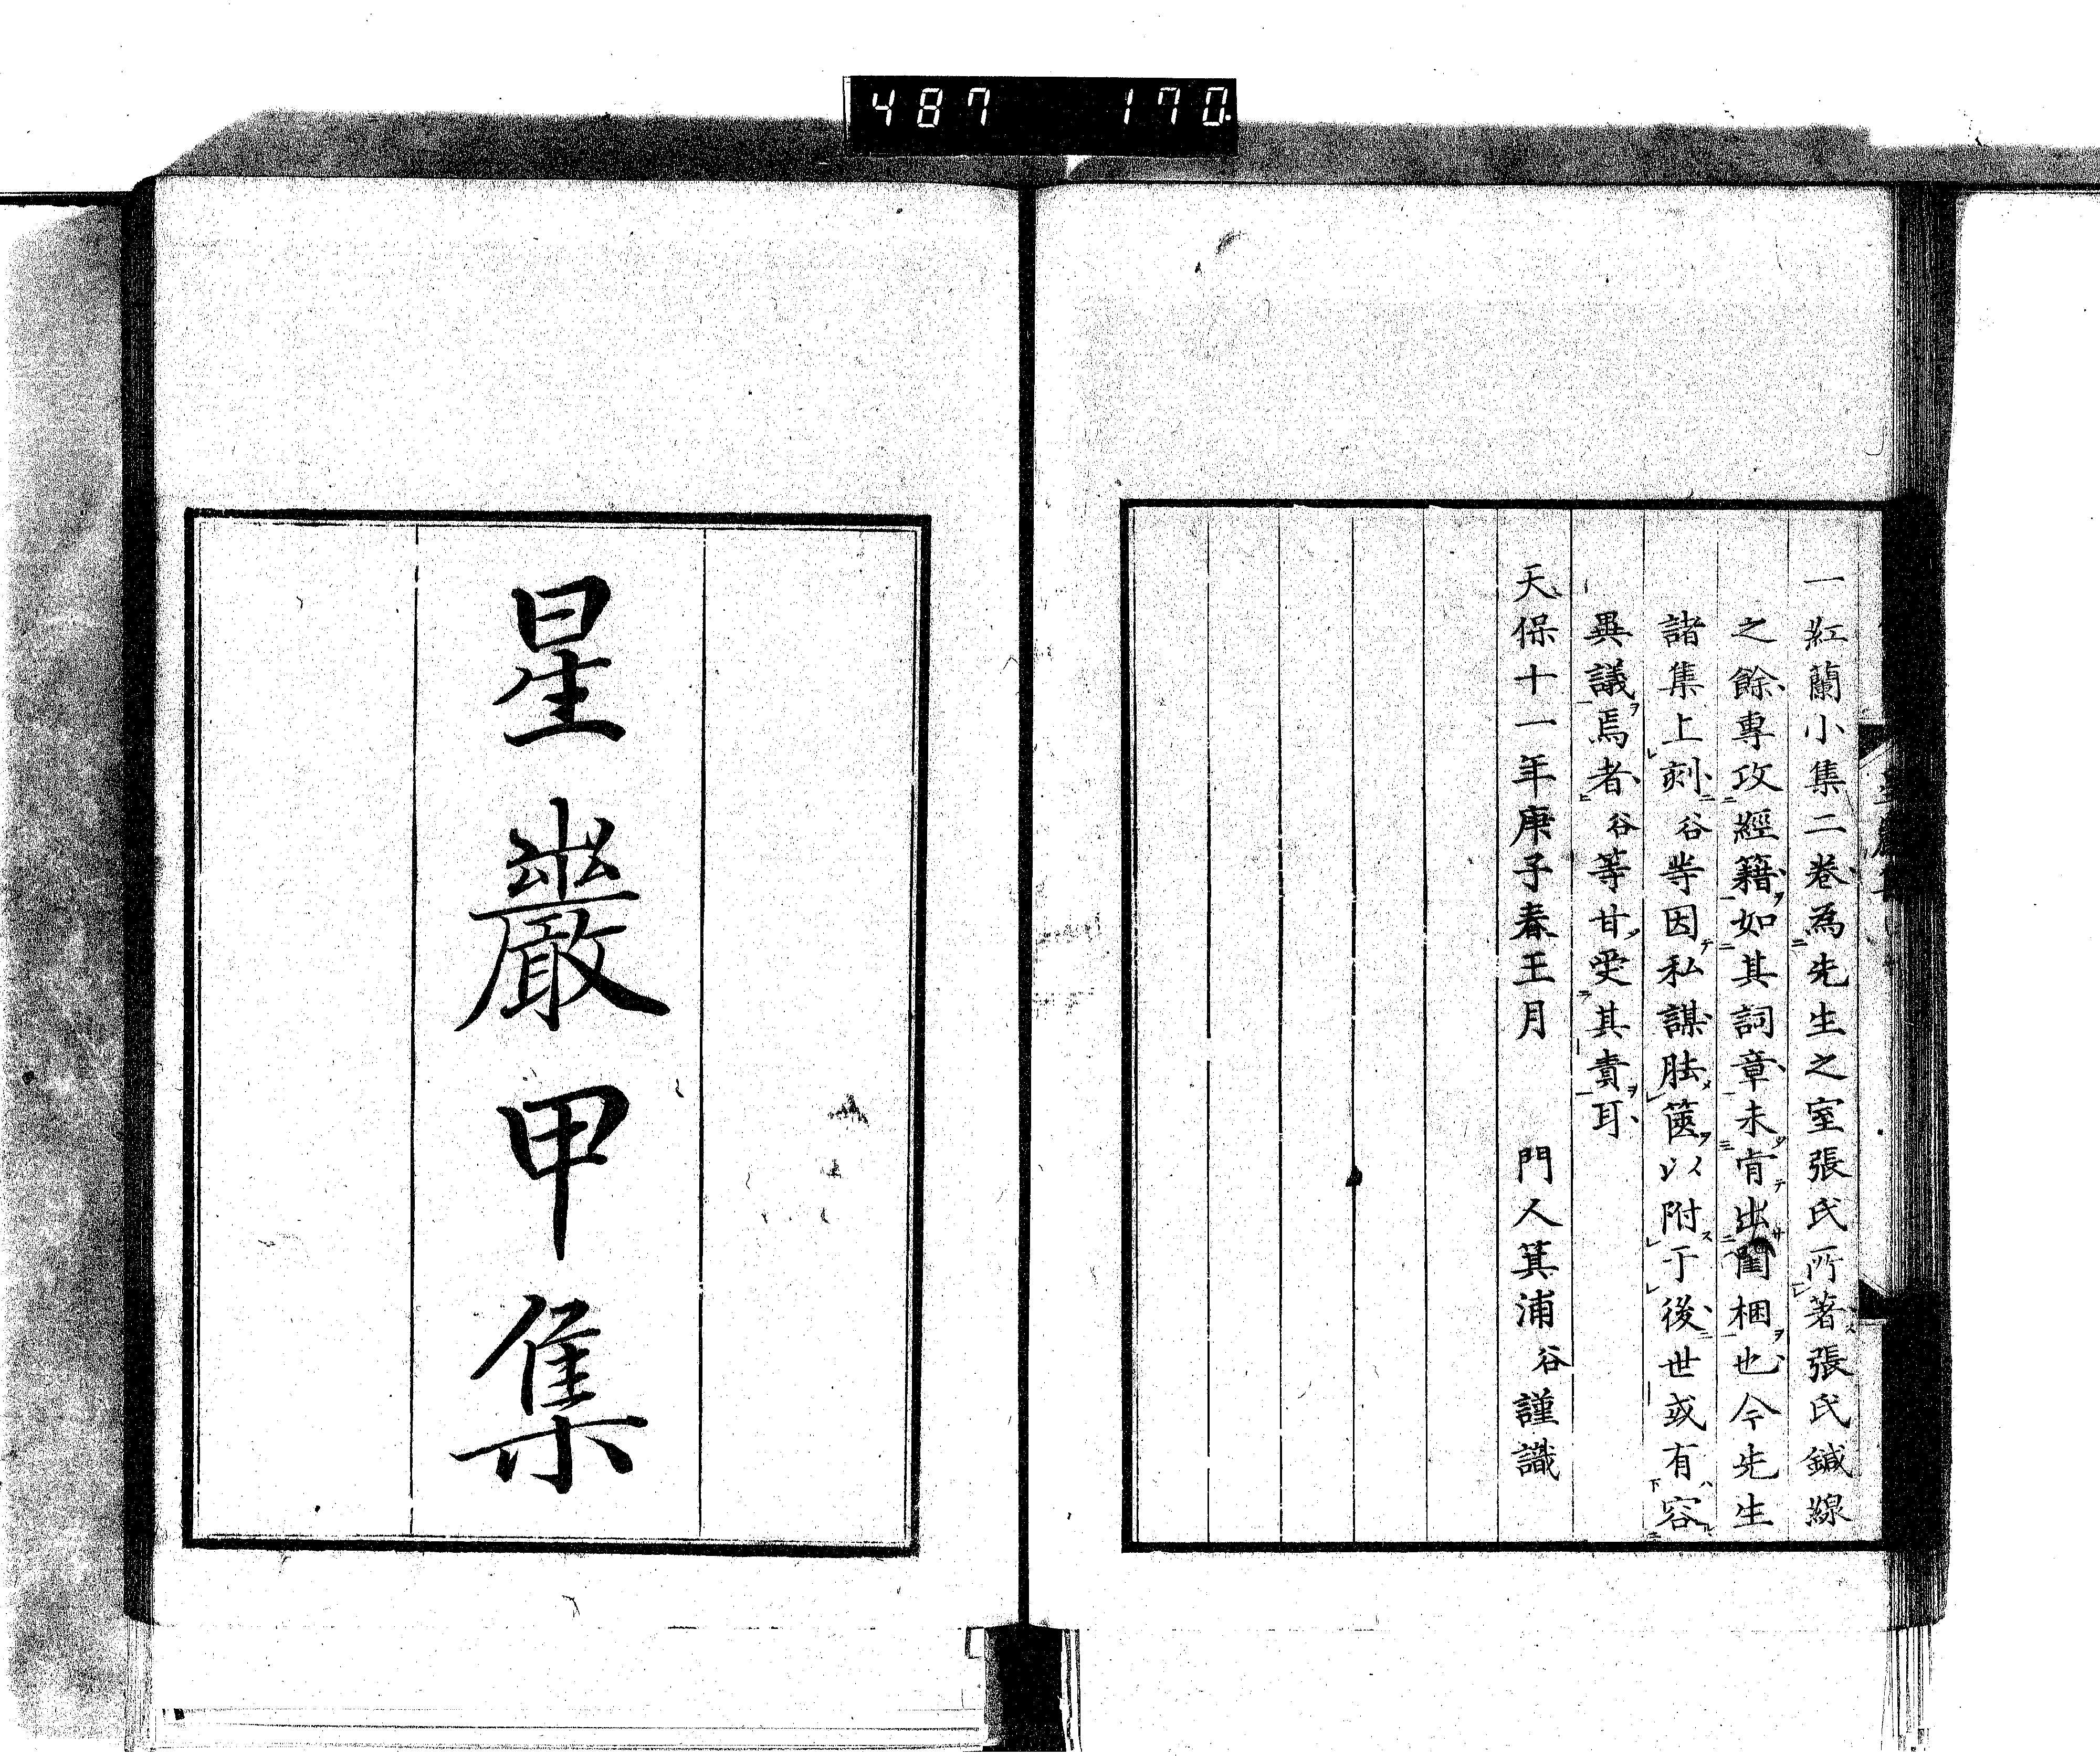 487 170
一紅蘭小集二卷為先生之室張氏所著張氏鍼線
之餘專攻經籍如其詞章未肯出閨梱也今先生
諸集上刻谷等因私謀胠篋以附于後世或有容
異議焉者谷等甘受其責耳
天保十一年庚子春王月 門人箕浦谷謹識
星巖甲集